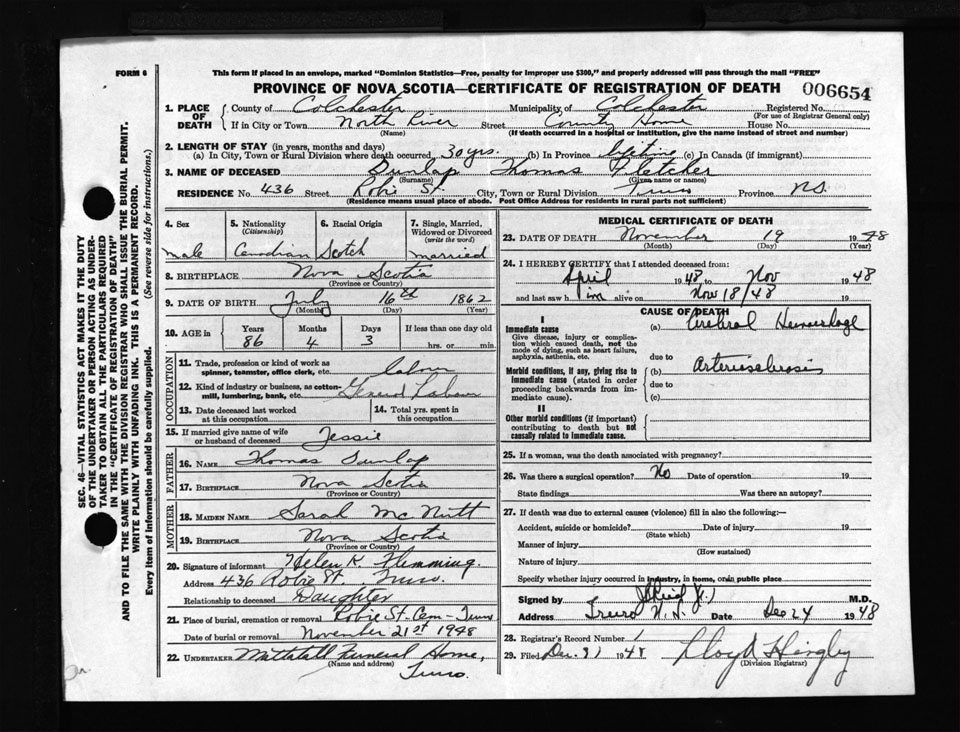 FORM 6
This form if placed in an envelope, marked "Dominion Statistics—Free, penalty for improper use $300," and properly addressed will pass through the mail "FREE"
PROVINCE OF NOVA SCOTIA—CERTIFICATE OF REGISTRATION OF DEATH
006654
1. PLACE OF DEATH
County of Colchester Municipality of Colchester Registered No.
(For use of Registrar General only)
If in City or Town North River Street County Home House No.
(Name) (If death occurred in a hospital or institution, give the name instead of street and number)
2. LENGTH OF STAY (in years, months and days)
(a) In City, Town or Rural Division where death occurred 30 yrs. (b) In Province lifetime (c) In Canada (if immigrant)
3. NAME OF DECEASED Dunlap Thomas Fletcher
(Surname) (Given name or names)
RESIDENCE No. 436 Street Robie St. City, Town or Rural Division Truro Province N.S.
(Residence means usual place of abode. Post Office Address for residents in rural parts not sufficient)
4. Sex
male
5. Nationality
(Citizenship)
Canadian
6. Racial Origin
Scotch
7. Single, Married, Widowed or Divorced
(write the word)
married
8. BIRTHPLACE Nova Scotia
(Province or Country)
9. DATE OF BIRTH July 16th 1862
(Month) (Day) (Year)
10. AGE in
Years Months Days If less than one day old
86 4 3 hrs. or min.
OCCUPATION
11. Trade, profession or kind of work as
spinner, teamster, office clerk, etc. labour
12. Kind of industry or business, as cotton-
mill, lumbering, bank, etc. General Labour
13. Date deceased last worked
at this occupation
14. Total yrs. spent in
this occupation
15. If married give name of wife
or husband of deceased Jessie
FATHER
16. NAME Thomas Dunlap
17. BIRTHPLACE Nova Scotia
(Province or Country)
MOTHER
18. MAIDEN NAME Sarah McNutt
19. BIRTHPLACE Nova Scotia
(Province or Country)
20. Signature of informant Helen K. Flemming.
Address 436 Robie St. Truro.
Relationship to deceased Daughter
21. Place of burial, cremation or removal Robie St. Cem- Truro
Date of burial or removal November 21st 1948
22. UNDERTAKER Mattatall Funeral Home,
(Name and address)
Truro.
MEDICAL CERTIFICATE OF DEATH
23. DATE OF DEATH November 19 1948
(Month) (Day)
24. I HEREBY CERTIFY that I attended deceased from:
April 1948 to Nov 1948
and last saw h im alive on Nov 18/48 19
CAUSE OF DEATH
I
Immediate cause
Give disease, injury or complication which caused death, not the mode of dying, such as heart failure, asphyxia, asthenia, etc.
(a) Cerebral Hemorrhage
due to
Morbid conditions, if any, giving rise to immediate cause (stated in order proceeding backwards from immediate cause).
(b) Arteriosclerosis
due to
(c)
II
Other morbid conditions (if important) contributing to death but not causally related to immediate cause.
25. If a woman, was the death associated with pregnancy?
26. Was there a surgical operation? No Date of operation 19
State findings Was there an autopsy?
27. If death was due to external causes (violence) fill in also the following:—
Accident, suicide or homicide? Date of injury 19
(State which)
Manner of injury
(How sustained)
Nature of injury
Specify whether injury occurred in industry, in home, or in public place
Signed by M.D.
Address Truro N.S. Date Dec 24 1948
28. Registrar's Record Number 1
29. Filed Dec. 31 1948 Lloyd Hingley
(Division Registrar)
SEC. 46—VITAL STATISTICS ACT MAKES IT THE DUTY
OF THE UNDERTAKER OR PERSON ACTING AS UNDER-
TAKER TO OBTAIN ALL THE PARTICULARS REQUIRED
IN THE "CERTIFICATE OF REGISTRATION OF DEATH"
AND TO FILE THE SAME WITH THE DIVISION REGISTRAR WHO SHALL ISSUE THE BURIAL PERMIT.
WRITE PLAINLY WITH UNFADING INK. THIS IS A PERMANENT RECORD.
Every item of information should be carefully supplied. (See reverse side for instructions.)